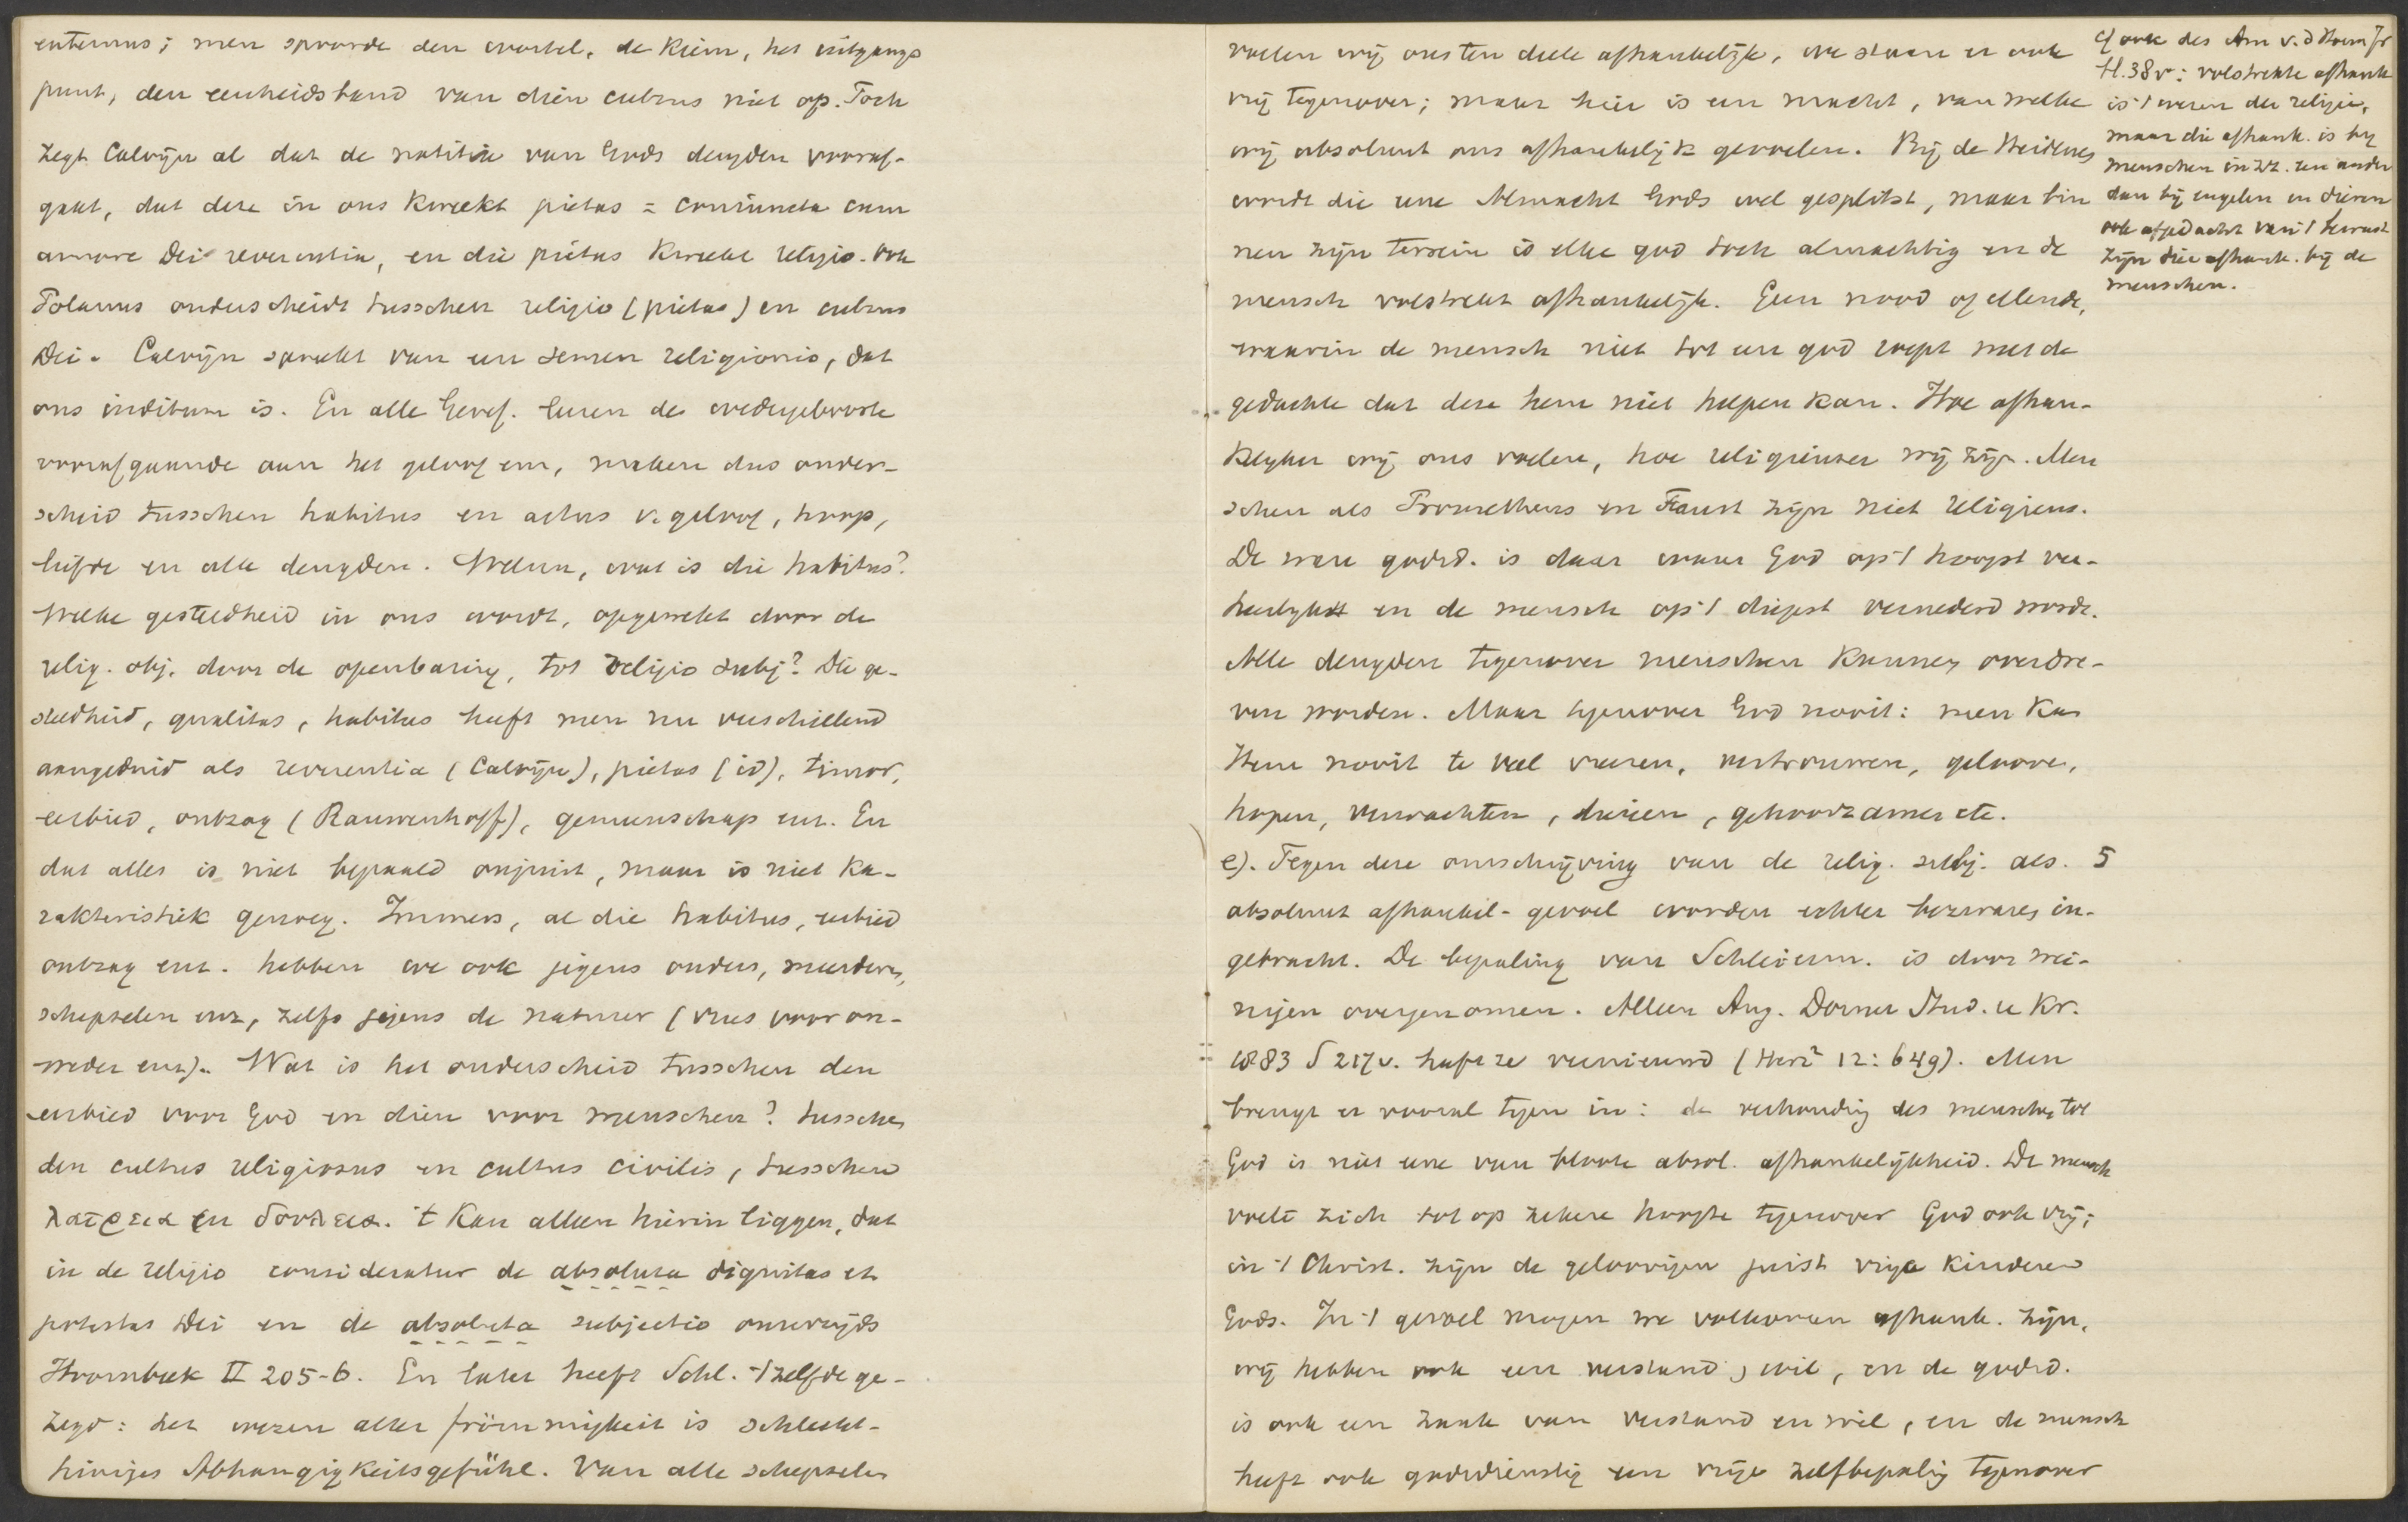 externus; men spoorde den wortel, de kiem, het uitgangs
punt, den eenheidsband van dien cultus niet op. Toch
zegt Calvijn al dat de notitie van Gods deugden vooraf-
gaat, dat deze in ons kweekt pietas = coniuncta cum
amore Dei reverentia, en die pietas kweekt religio. Ook
Polanus onderscheidt tusschen religio (pietas) en cultus
Dei. Calvijn spreekt van een semen religionis, dat
ons inditum is. En alle Geref. leeren de wedergeboorte
voorafgaande aan het geloof enz, maken dus onder-
scheid tusschen habitus en actus v. geloof, hoop,
liefde en alle deugden. Welnu, wat is die habitus?
Welke gesteldheid in ons wordt, opgewekt door de
relig. obj. door de openbaring, tot religio subj? Die ge-
steldheid, qualitas, habitus heeft men nu verschillend
aangeduid als reverentia (Calvijn), pietas (id), timor,
eerbied, ontzag (Rauwenhoff), gemeenschap enz. En
dat alles is niet bepaald onjuist, maar is niet ka-
rakteristiek genoeg. Immers, al die habitus, eerbied
ontzag enz. hebben we ook jegens ouders, meerderen,
schepselen enz, zelfs jegens de natuur (vrees voor on-
weder enz). Wat is het onderscheid tusschen den
eerbied voor God en dien voor menschen? tusschen
den cultus religiosus en cultus civilis, tusschen
λατρεια en δουλεια. 't Kan alleen hierin liggen, dat
in de religio consideratur de absoluta dignitas et
potestas Dei en de absoluta subjectio onzerzijds
Hoornbeek II 205-6. En later heeft Schl. 't zelfde ge-
zegd: het wezen aller frömmigkeit is schlecht-
hiniges Abhangigkeitsgefühl. Van alle schepselen
voelen wij ons ten deele afhankelijk, we staan er ook
vrij tegenover; maar hier is een macht, van welke
wij absoluut ons afhankelijk gevoelen. Bij de Heidenen
wordt die eene Almacht Gods wel gesplitst, maar bin
nen zijn terrein is elke god toch almachtig en de
mensch volstrekt afhankelijk. Geen nood of ellende,
waarin de mensch niet tot een god roept met de
gedachte dat deze hem niet helpen kan. Hoe afhan-
kelijker wij ons voelen, hoe religieuser wij zijn. Men
schen als Prometheus en Faust zijn niet religieus.
De ware godsd. is daar waar God op 't hoogst ver-
heerlijkt en de mensch op 't diepst vernederd wordt.
Alle deugden tegenover menschen kunnen overdre-
ven worden. Maar tegenover God nooit: men kan
Hem nooit te veel vreezen, vertrouwen, gelooven,
hopen, verwachten, dienen, gehoorzamen etc.
e). Tegen deze omschrijving van de relig. subj. als 5
absoluut afhankel-gevoel worden echter bezwaren in-
gebracht. De bepaling van Schleierm. is door wei-
nigen overgenomen. Alleen Aug. Dorner Stud. u Kr.
1883 S 217v. heeft ze vernieuwd (Herz² 12: 649). Men
brengt er vooral tegen in: de verhouding des menschen tot
God is niet eene van bloote absol. afhankelijkheid. De mensch
voelt zich tot op zekere hoogte tegenover God ook vrij;
in 't Christ. zijn de geloovigen juist vrije kinderen
Gods. In 't gevoel mogen we volkomen afhank. zijn,
wij hebben ook een verstand, wil, en de godsd.
is ook een zaak van verstand en wil, en de mensch
heeft ook godsdienstig een vrije zelfbepaling tegenover
cf ook des Am v. d Hoem Jr
H. 38v: volstrekte afhank
is 't wezen der religie,
maar die afhank. is bij
menschen in zz. een ander
dan bij engelen en dieren
ook afgedacht van 't bewust
zijn dier afhank. bij de
menschen.